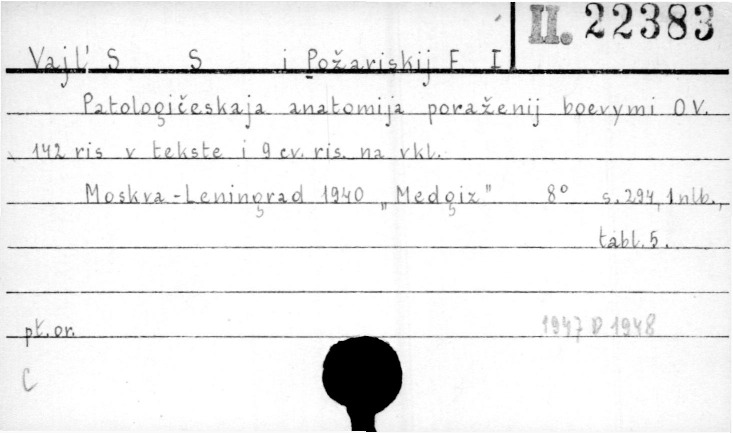 II. 22383
Vajl' S S i Požariskij F I
Patologičeskaja anatomija poraženij boevymi OV.
142 ris v tekste i 9 cv. ris. na vkl.
Moskva-Leningrad 1940 „Medgiz" 8° s. 294, 1 nlb.,
tabl. 5.
pt. or. 1947 D 1948
C